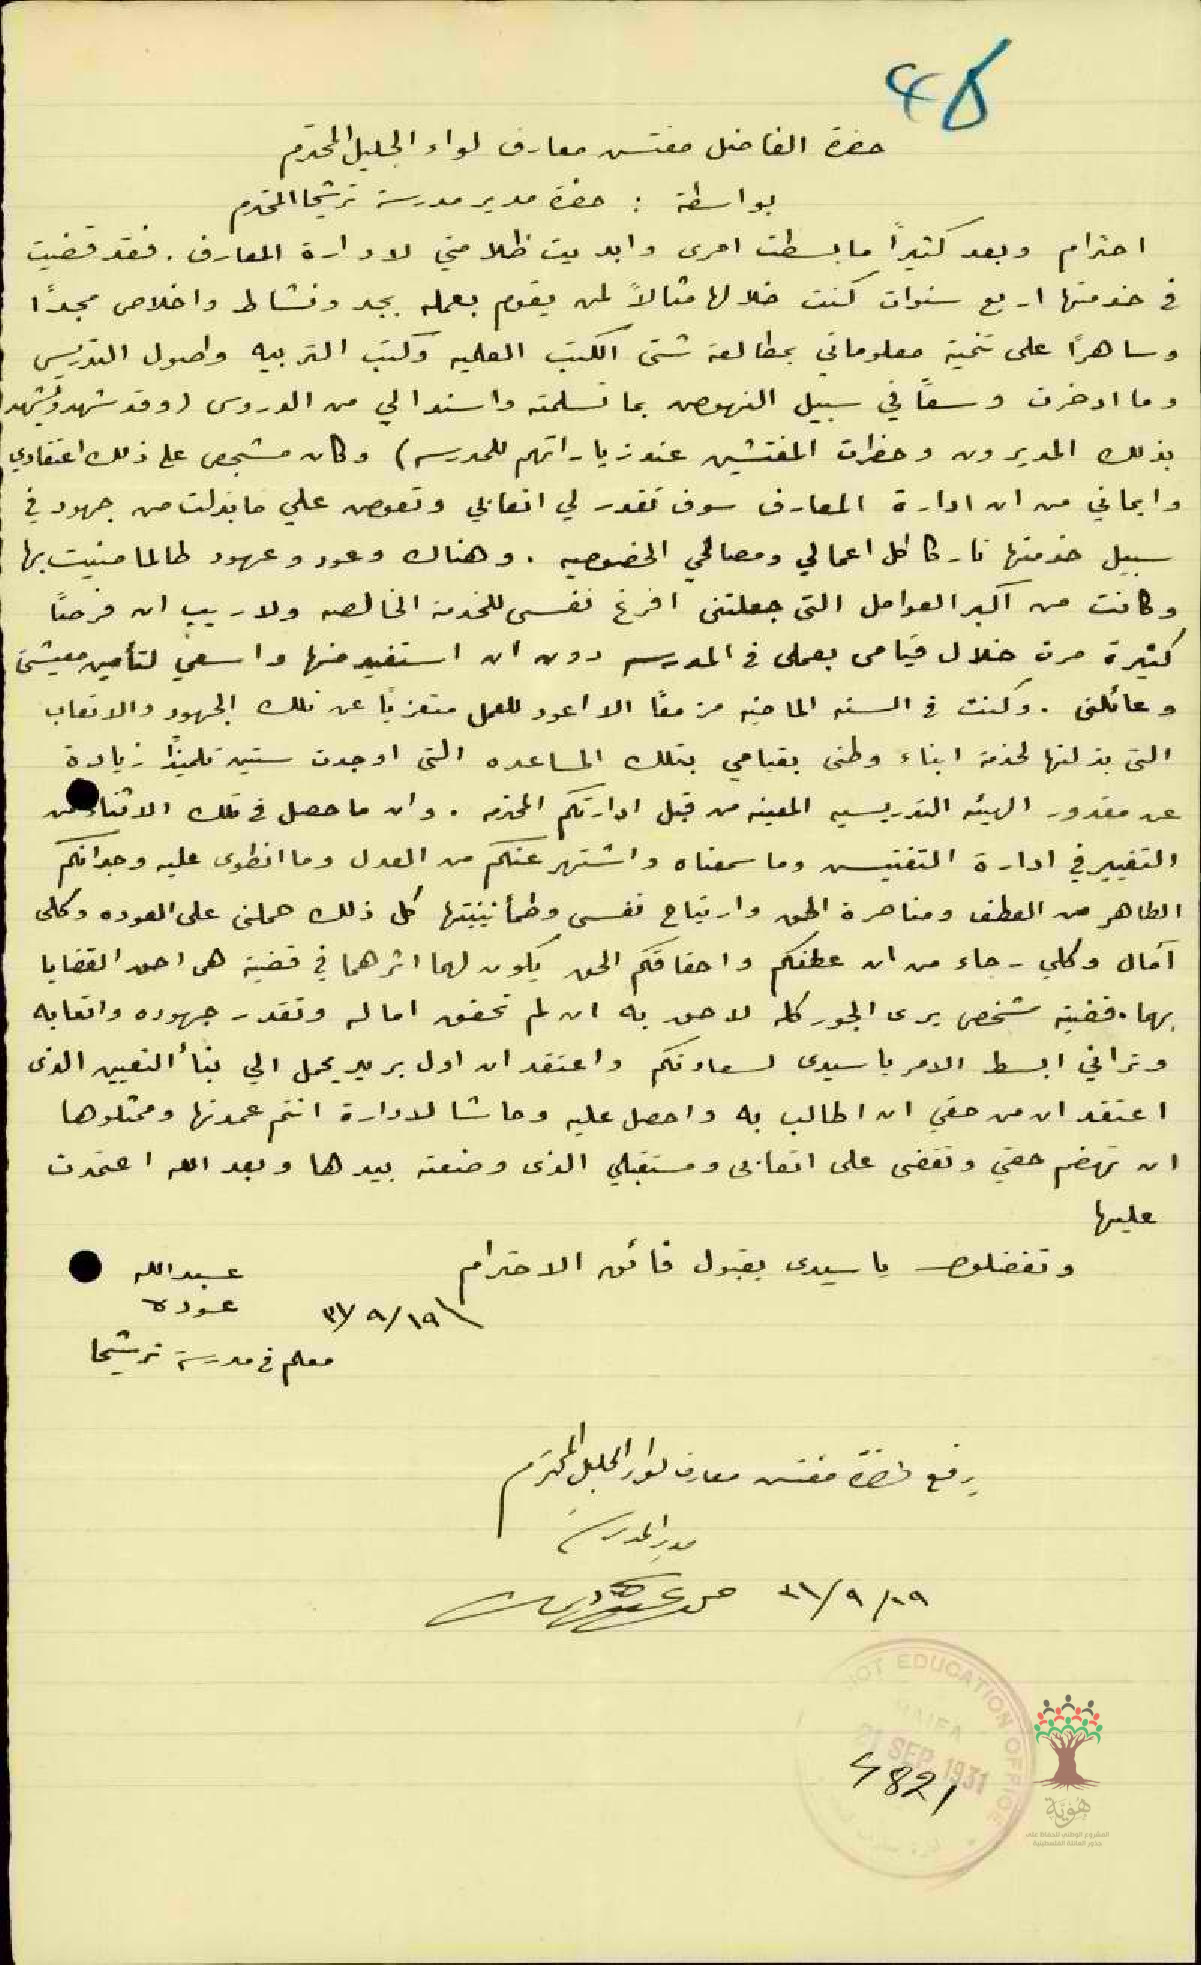 48
حضرة الفاضل مفتش معارف لواء الجليل المحترم
بواسطة : حضرة مدير مدرسة ترشيحا المحترم
احترام وبعد كثيراً ما بسطت امرى وابديت ظلامتي لادارة المعارف . فقد قضيت
في خدمتها اربع سنوات كنت خلالها مثالاً لمن يقوم بعمله بجد ونشاط واخلاص مجدًا
وساهرًا على تنمية معلوماتي بمطالعة شتى الكتب العلميه وكتب التربيه واصول التدريس
وما ادخرت وسعاً في سبيل النهوض بما تسلمته واسند الي من الدروس (وقد شهد ويشهد
بذلك المديرون وحضرات المفتشين عند زياراتهم للمدرسه) وكان مشجعى على ذلك اعتقادي
وايماني من ان ادارة المعارف سوف تقدر لي اتعابي وتعوض علي ما بذلت من جهود في
سبيل خدمتها تاركا كل اعمالي ومصالحي الخصوصيه . وهناك وعود وعهود طالما منيت بها
وكانت من اكبر العوامل التى جعلتنى افرغ نفسى للخدمة الخالصه ولا ريب ان فرصًا
كثيرة مرت خلال قيامى بعملى فى المدرسه دون ان استفيد منها واسعى لتأمين معيشتى
وعائلتى . وكنت فى السنه الماضيه مزمعًا الا اعود للعمل متعزيًا عن تلك الجهود والاتعاب
التى بذلتها لخدمة ابناء وطنى بقيامي بتلك المساعده التى اوجدت ستين تلميذًا زيادة
عن مقدور الهيئه التدريسيه المعينه من قبل ادارتكم المحترمه . وان ما حصل فى تلك الاثناء من
التغيير في ادارة التفتيش وما سمعناه واشتهر عنكم من العدل وما انطوى عليه وجدانكم
الطاهر من العطف ومناصرة الحق وارتياح نفسى وطمأنينتها كل ذلك حملنى على العوده وكلى
آمال وكلي رجاء من ان عطفكم واحقاقكم الحق يكون لهما اثرهما في قضية هى احق القضايا
بهما. قضية شخص يرى الجور كله لاحق به ان لم تحقق اماله وتقدر جهوده واتعابه
وتراني ابسط الامر يا سيدى لسعادتكم واعتقد ان اول بريد يحمل الي نبأ التعيين الذى
اعتقد ان من حقي ان اطالب به واحصل عليه وحاشا لادارة انتم عمدتها وممثلوها
ان تهضم حقي وتقضى على اتعابى ومستقبلي الذى وضعته بيدها وبعد الله اعتمدت
عليها
وتفضلوا يا سيدى بقبول فائق الاحترام
عبدالله
عوده
٣١/٩/١٩
معلم فى مدرسة ترشيحا
يرفع لحضرة مفتش معارف لواء الجليل المحترم
مدير المدرسة
٣١/٩/١٩
EDUCATION OFFICE
HAIFA
21 SEP 1931
4821
هوية
المشروع الوطني للحفاظ على
جذور العائلة الفلسطينية